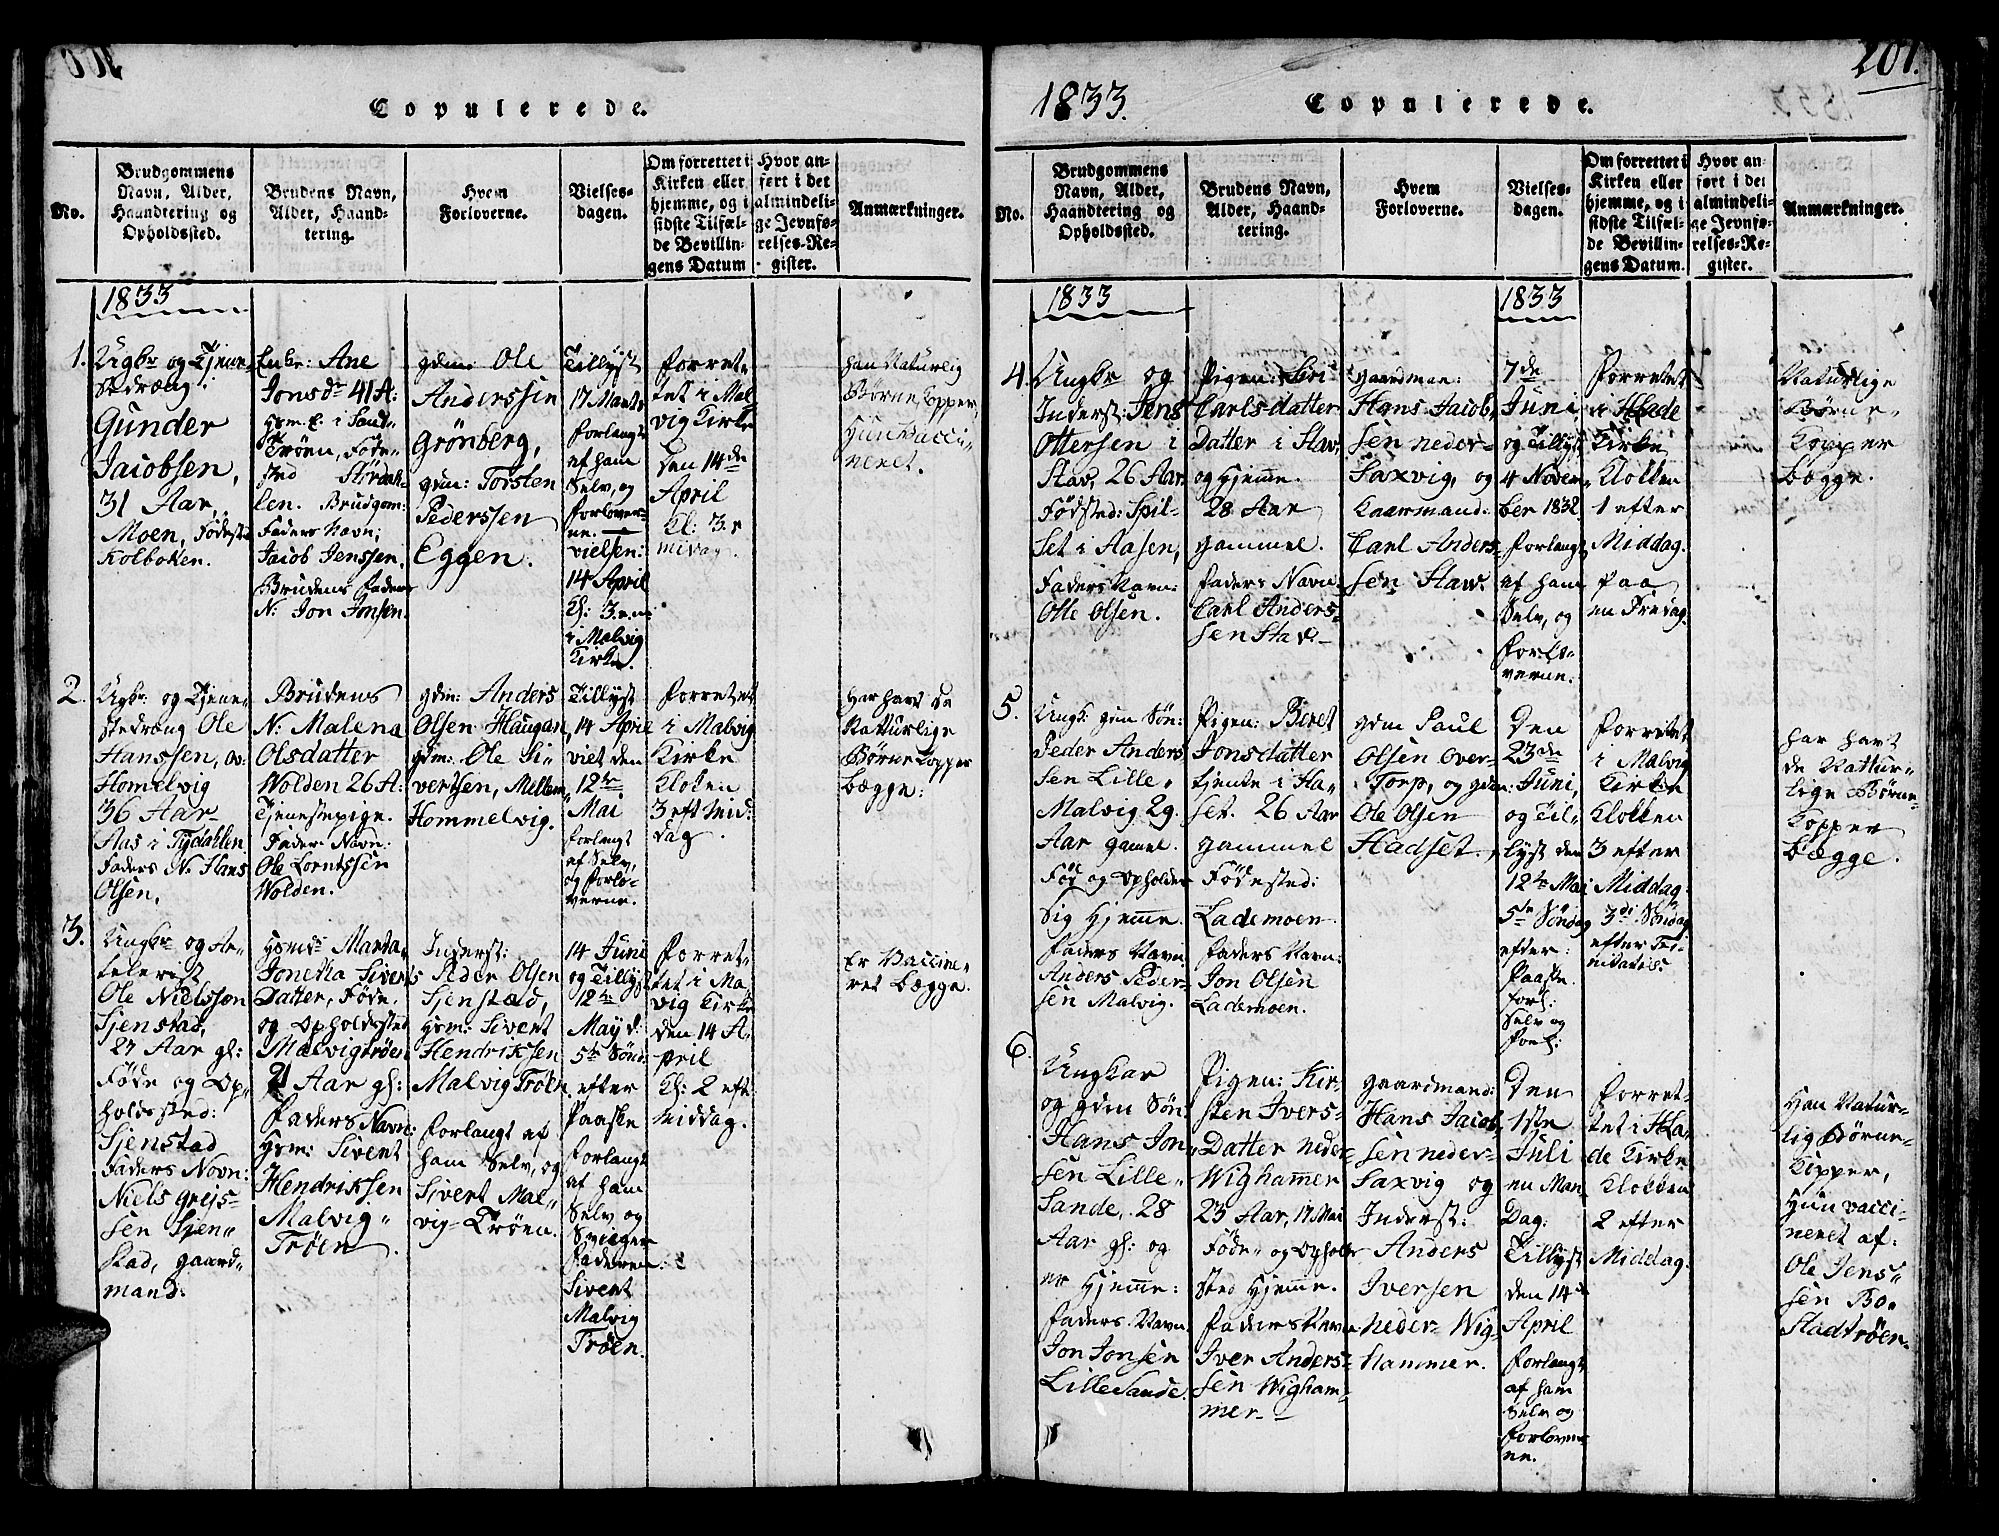 Copulerede.
No.
Brudgommens
Navn, Alder,
Haandtering og
Opholdssted.
Brudens Navn,
Alder, Haand-
tering.
Hvem
Forloverne.
Vielses-
dagen.
Om forrettet i
Kirken eller
hjemme, og i
sidste Tilfæl-
de Bevillin-
gens Datum
Hvor an-
ført i det
almindeli-
ge Jevnfø-
relses-Re-
gister.
Anmærkninger.
1833
1.
Ugkr og Tjene-
stedræng:
Gunder
Jacobsen,
31 Aar,
Moen, Fødested
Kolboken.
Enke: Ane
Jonsdr 41 A:
Hsm. E. i Sand-
Trøen, Føde-
sted Størdah-
len. Brudgom:
Faders Navn;
Jacob Jenssen,
Brudens Faders
N: Jon Jonsen.
gdm: Ole
Anderssen
Grønberg,
gdm: Torsten
Pederssen
Eggen.
Tillyst
17 Marts
Forlangt
af ham
Selv, og
Forlover-
ne.
vielsen:
14 April
Kl: 3 em:
i Malvig
Kirke.
Forret-
tet i Mal
vig Kirke
Den 14de
April
Kl: 3 e
midag.
han Naturlig
Børne Kopper,
Hun Vacci-
neret.
2.
Ugkr: og Tjene-
stedræng Ole
Hanssen, ov:
Homelvig
36 Aar-
Aas i Tydahlen
Faders N: Hans
Olsen.
Brudens
N: Malena
Olsdatter
Wolden 26 A:
Tjenestepige.
Fader Navn:
Ole Lorntssen
Wolden.
gdm: Anders
Olsen Haugan,
gdm: Ole Si-
vertsen, Mellem-
Hommelvig.
Tillyst
14 April
viet den
12te
Mai
forlangt
af Selv,
og Forlo-
verne.
Forretet
i Malvig
Kirke
Kloken
3 eft Mid:
dag.
Har havt da
Naturlige
Børne Kopper
bægge:
3.
Ungkr og Ar-
telerist
Ole Nielsson
Sjenstad,
27 Aar gl:
Føde og Op-
holdssted:
Sjenstad
Faders Novn:
Niels Grejs-
sen Sjen-
stad, gaard-
mand:
Hsmds: Marta
Jonetta Siverts
Datter, Føde.
og Opholdssted
Malvigtrøen
21 Aar gl:
Faders Navn:
Hsm: Sivert
Hendriksen
Malvig-
Trøen.
Inderst:
Peder Olsen
Sjenstad,
Hsm: Sivert
Hendriksen
Malvig Trøen.
Forlangt af
ham Selv, og
Sivert Mal-
vig-Trøen.
14 Juni
og Tillyst
12te
May d:
5te Sønd:
efter
Paaske
Forlangt
af ham
Selv og
Sviger
Faderen:
Sivert
Malvig
Trøen.
Forret-
tet i Ma-
vig Kirke
den 14 A-
pril
Kl: 2 eft:
Middag.
Er Vaccine-
ret bægge.
201.
1833.
Copulerede.
No.
Brudgommens
Navn, Alder,
Haandtering og
Opholdssted.
Brudens Navn,
Alder, Haand-
tering.
Hvem
Forloverne.
Vielses-
dagen.
Om forrettet i
Kirken eller
hjemme, og i
sidste Tilfæl-
de Bevillin-
gens Datum.
Hvor an-
ført i det
almindeli-
ge Jevnfø-
relses-Re-
gister.
Anmærkninger.
1833
1833
4.
Ungkr og
Inderst: Jens
Ottersen i
Stav, 26 Aar
Fødsted: Spil-
Set i Aasen,
Faders Navn:
Ole Olsen.
Pigen: Siri
Carlsdatter
Datter i Stav,
og Hjemme.
28 Aar
gammel.
Faders Navn
Carl Anders-
sen Stav-
gaardman:
Hans Jacob-
sen neder-
Saxvig, og
Kaarmand:
Carl Anders-
sen Stav.
7de
Juni
og Tillyst
4 Novem-
ber 1832
Forlangt
af ham
Selv, og
Forlo-
verne.
Forretet
i Hlade
Kirke
Klokken
1 efter
Middag.
Paa
en Fredag.
Naturlige
Børne-
Kopper
bægge.
5.
Ungk: gdm Søn:
Peder Anders
sen Lille-
Malvig 29.
Aar gamel.
Fød og opholder
Sig Hjemme.
Faders Navn
Anders Peder-
sen Malvig.
Pigen: Beret
Jonsdatter
tjente i Ha-
set. 26 Aar
gammel
Fødested:
Lademoen
Faders Navn:
Jon Olsen
Lademoen.
gdm Paul
Olsen Over-
Torp, og gdm:
Ole Olsen
Hadset.
Den
23de
Juni,
og Til-
lyst den
12te Mai
5te Søndag
efter
Paaske.
Forl:
Selv og
Forl:
Forretet
i Malvig
Kirke
Klokken
3 efter
Middag:
3di Søndag
efter Tri-
nitatis:
har havt
de Nattur-
lige Børne-
Kopper
bægge.
6.
Ungkar
og gdm Søn:
Hans Jon
sen Lille-
Sande, 28
Aar gl: og
er Hjemme:
Faders Navn
Jon Jonsen
Lille Sande.
Pigen: Kir-
sten Ivers-
Datter neder-
Wighammer
23 Aar, 17 Mai
Føde- og Opholds
sted Hjemme.
Faders Navn
Iver Anders-
sen Wigham-
mer-
gaardmand:
Hans Jacob-
sen neder-
Saxvig og
Inderst:
Anders
Iversen
neder-Wig-
hammer.
Den
1ste
Juli
en Man
Dag:
Tillyst
den 14de
April
Forlangt
af ham
Selv og
Forlover
ne.
Forret-
tet i Hla-
de Kirke
Klokken
2 efter
Middag:
Han Natur-
lig Børne-
Kopper,
Hun vacci-
neret af:
Ole Jens-
sen Bo-
Stadtrøen.